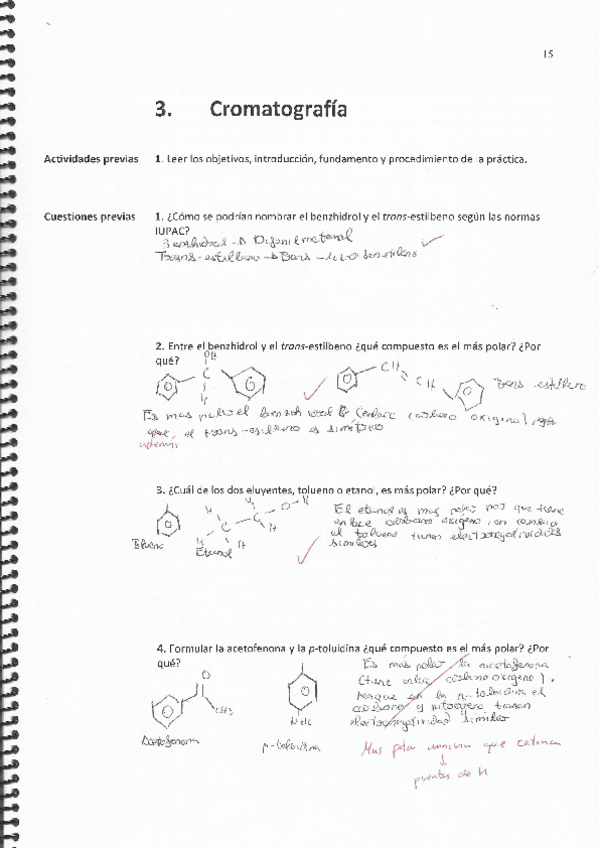 15
3. Cromatografía
Actividades previas 1. Leer los objetivos, introducción, fundamento y procedimiento de a práctica.
Cuestiones previas 1. ¿Cómo se podrían nombrar el benzhidrol y el trans-estilbeno según las normas
IUPAC?
Benzhidrol → Difenilmetanol
Trans-estilbeno → Trans-
2. Entre el benzhidrol y el trans-estilbeno ¿qué compuesto es el más polar? ¿Por
qué?
OH
C
H
CH
CH
Trans estilbeno
Es mas polar el benzhidrol enlace (carbono oxigeno), ya
que, el trans-estilbeno es simétrico
además
3. ¿Cuál de los dos eluyentes, tolueno o etanol, es más polar? ¿Por qué?
El etanol es mas polar por que tiene
enlace carbono oxigeno, en cambio
el tolueno tienen electronegatividades
similares
Tolueno
Etanol
4. Formular la acetofenona y la p-toluidina ¿qué compuesto es el más polar? ¿Por
qué?
Es más polar la acetofenona
(tiene enlace carbono oxigeno).
Porque en la p-toluidina el
carbono y nitrogeno tienen
electronegatividad similar
O
CH3
Acetofenona
p-toluidina
Mas polar amina que cetona
puentes de H